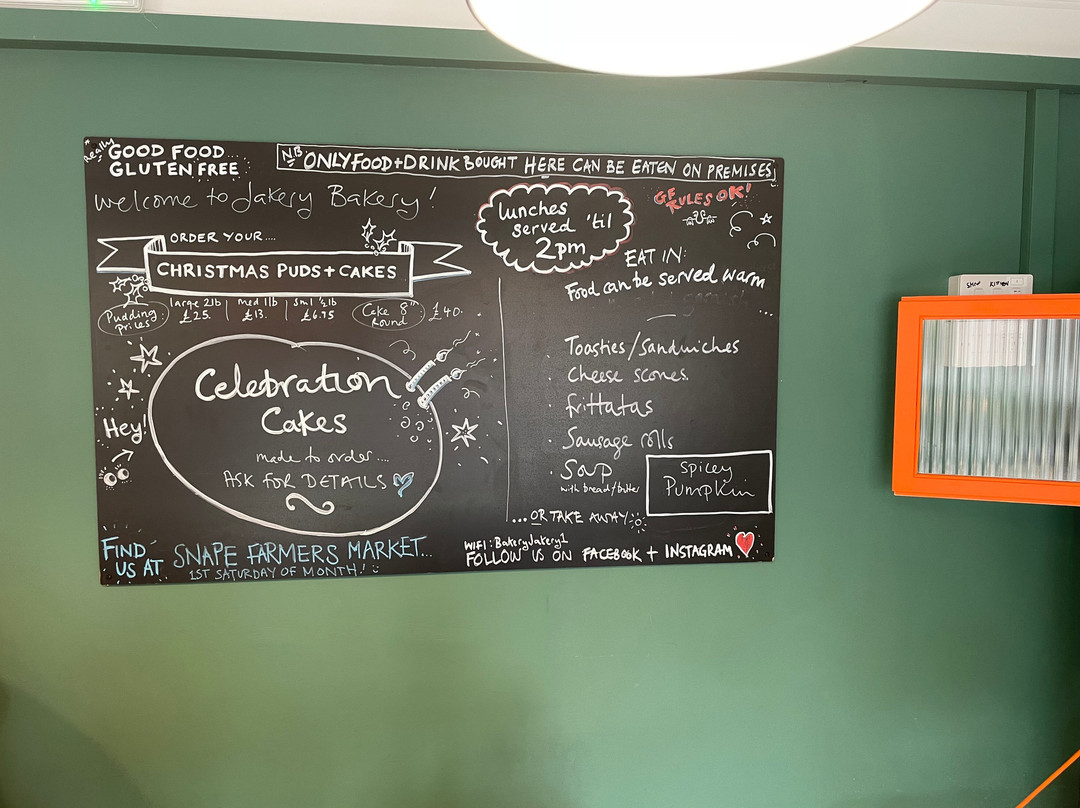 Really
GOOD FOOD...
GLUTEN FREE
NB ONLY FOOD + DRINK BOUGHT HERE CAN BE EATEN ON PREMISES
welcome to Jakery Bakery!
ORDER YOUR....
CHRISTMAS PUDS + CAKES
Pudding Prices
large 2lb £25.
med 1lb £13.
sml ½lb £6.75
Cake 8" Round £40.
Hey!
Celebration
Cakes
made to order....
ASK FOR DETAILS
FIND US AT SNAPE FARMERS MARKET...
1ST SATURDAY OF MONTH!
lunches
served 'til
2pm
GF RULES OK!
EAT IN:
Food can be served warm
...
Toasties/Sandwiches
Cheese scones
frittatas
Sausage rolls
Soup
with bread/butter
Spicey
Pumpkin
... OR TAKE AWAY
WIFI: BakeryJakery1
FOLLOW US ON FACEBOOK + INSTAGRAM